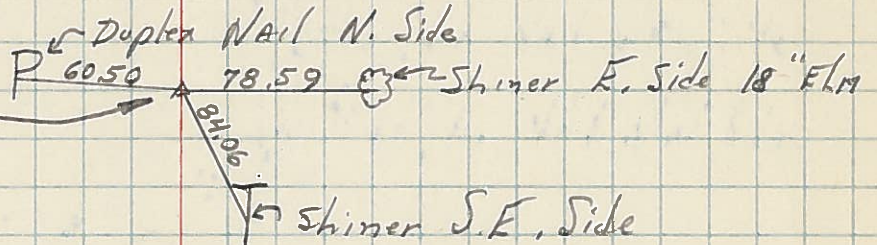 Duplex Nail N. Side
P 60.50 78.59 Shiner E. Side 18" Elm
84.06
T Shiner S.E. Side